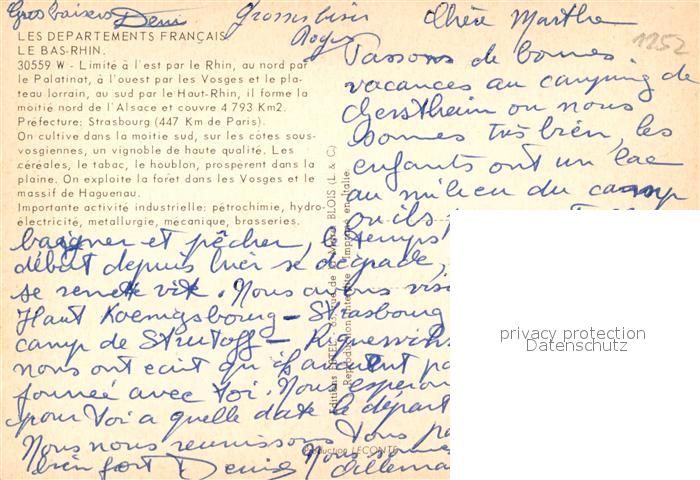 Gros baisers Denis
Grosses bises
Roger
Chère Marthe
1252
LES DEPARTEMENTS FRANÇAIS
LE BAS-RHIN.
30559 W - Limité à l'est par le Rhin, au nord par
le Palatinat, à l'ouest par les Vosges et le pla-
teau lorrain, au sud par le Haut-Rhin, il forme la
moitié nord de l'Alsace et couvre 4 793 Km2.
Préfecture: Strasbourg (447 Km de Paris).
On cultive dans la moitie sud, sur les côtes sous-
vosgiennes, un vignoble de haute qualité. Les
céréales, le tabac, le houblon, prospèrent dans la
plaine. On exploite la forêt dans les Vosges et le
massif de Haguenau.
Importante activité industrielle: pétrochimie, hydro-
électricité, metallurgie, mécanique, brasseries.
Passons de bonnes
vacances au camping de
Gerstheim ou nous
sommes très bien, les
enfants ont un lac
au milieu du camp
ou ils
baigner et pêcher, le temps
début depuis hier se dégrade,
se remette vite. Nous avons visi
Haut Koenigsbourg - Strasbourg
camp de Strutoff - Riquewihr
nous ont écrit qu'ils avaient pa
journée avec toi. Nous espéron
pour toi a quelle date le départ
Nous nous reunissons tous po
bien fort Denise Nous sommes
allema
Editions
BLOIS (L. & C.)
Reproduction interdite - Imprimé en Italie
Production LECONTE
privacy protection
Datenschutz